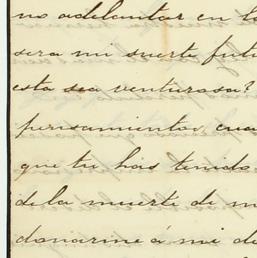 no adelantar en la
sera mi suerte futu
esta sea venturosa?
pensamientos cua
que tu has tenido
de la muerte de m
donarme á mi de